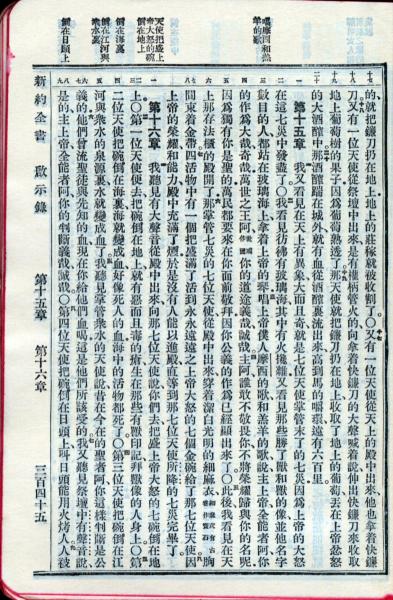 唱摩西和羔
羊的歌
天使把盛上
帝大怒的碗
倒在地上
倒在海裏
倒在江河與
眾水裏
倒在日頭上
的就把鐮刀扔在地上地上的莊稼就被收割了〇又有一位天使從天上的殿中出來他也拿着快鐮
刀又有一位天使從祭壇中出來是有權柄管火的向拿着快鐮刀的大聲喊着說伸出快鐮刀來收取
地上葡萄樹的果子因爲葡萄熟透了那天使就把鐮刀扔在地上收取了地上的葡萄丟在上帝忿怒
的大酒醡中那酒醡踹在城外就有血從酒醡裏流出來高到馬的嚼環遠有六百里
第十五章 我又看見在天上有異象大而且奇就是七位天使掌管末了的七災因爲上帝的大怒
在這七災中發盡了〇我看見彷彿有玻璃海其中有火攙雜又看見那些勝了獸和獸的像並他名字
數目的人都站在玻璃海上拿着上帝的琴唱上帝僕人摩西的歌和羔羊的歌說主上帝全能者阿你
的作爲大哉奇哉萬世之王阿你的道途義哉誠哉主阿誰敢不敬畏你不將榮耀歸與你的名呢
因爲獨有你是聖的萬民都要來在你面前敬拜因你公義的作爲已經顯出來了〇此後我看見在天
上那存法櫃的殿開了那掌管七災的七位天使從殿中出來穿着潔白光明的細麻衣胸
間束着金帶四活物中有一個把盛滿了活到永永遠遠之上帝大怒的七個金碗給了那七位天使因
上帝的榮耀和能力殿中充滿了煙於是沒有人能以進殿直等到那七位天使所降的七災完畢了
第十六章 我聽見有大聲音從殿中出來向那七位天使說你們去把盛上帝大怒的七碗倒在地
上〇第一位天使便去把碗倒在地上就有惡而且毒的瘡生在那些有獸印記拜獸像的人身上〇第
二位天使把碗倒在海裏海就變成血好像死人的血海中的活物都死了〇第三位天使把碗倒在江
河與眾水的泉源裏水就變成血了我聽見掌管眾水的天使說昔在今在的聖者阿你這樣判斷是公
義的他們曾流聖徒與先知的血現在你給他們血喝這是他們所該受的我又聽見祭壇中有聲音說
是的主上帝全能者阿你的判斷義哉誠哉〇第四位天使把碗倒在日頭上叫日頭能用火烤人人被
新約全書 啟示錄 第十五章 第十六章 三百四十五